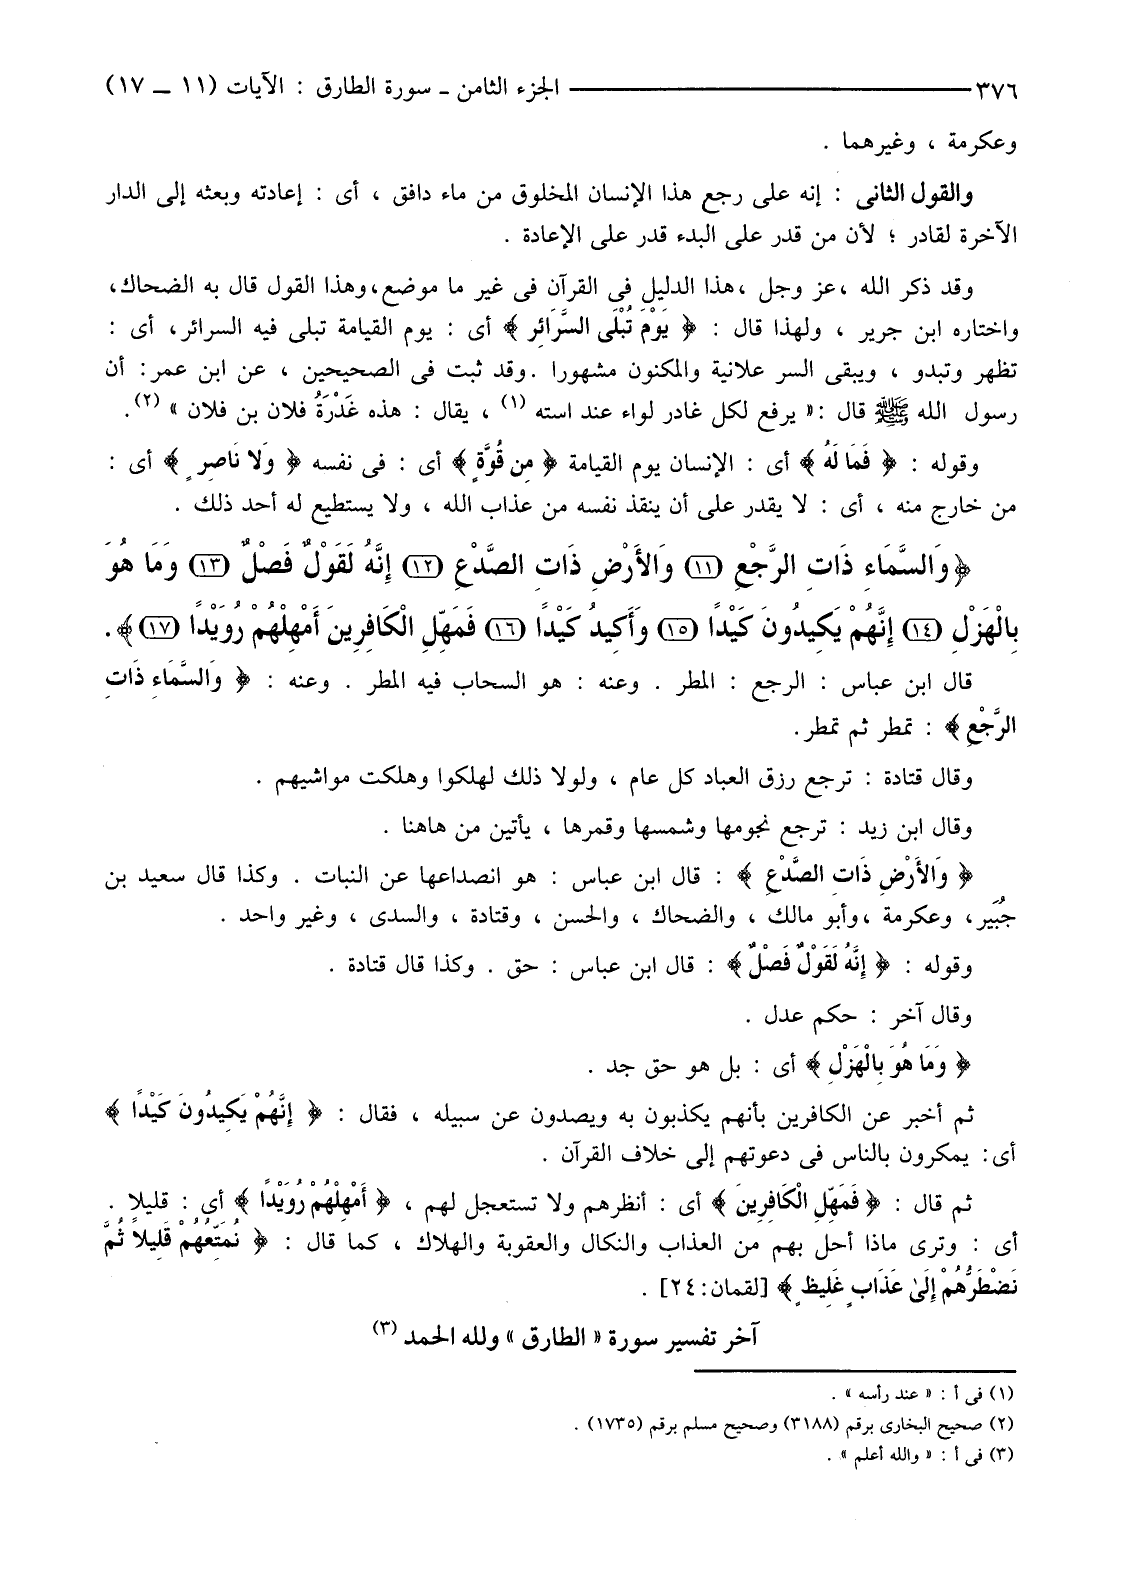 ٣٧٦ ــــــ الجزء الثامن ـ سورة الطارق : الآيات (١١ ــ ١٧)
وعكرمة ، وغيرهما .
والقول الثانى : إنه على رجع هذا الإنسان المخلوق من ماء دافق ، أى : إعادته وبعثه إلى الدار
الآخرة لقادر ؛ لأن من قدر على البدء قدر على الإعادة .
وقد ذكر الله ،عز وجل ،هذا الدليل فى القرآن فى غير ما موضع،وهذا القول قال به الضحاك،
واختاره ابن جرير ، ولهذا قال : ﴿ يَوْمَ تُبْلَى السَّرَائِر ﴾ أى : يوم القيامة تبلى فيه السرائر، أى :
تظهر وتبدو ، ويبقى السر علانية والمكنون مشهورا .وقد ثبت فى الصحيحين ، عن ابن عمر: أن
رسول الله ﷺ قال :« يرفع لكل غادر لواء عند استه (١) ، يقال : هذه غَدْرَةُ فلان بن فلان » (٢).
وقوله : ﴿ فَمَا لَهُ ﴾ أى : الإنسان يوم القيامة ﴿ مِن قُوَّةٍ ﴾ أى : فى نفسه ﴿ وَلا نَاصِرٍ ﴾ أى :
من خارج منه ، أى : لا يقدر على أن ينقذ نفسه من عذاب الله ، ولا يستطيع له أحد ذلك .
﴿ وَالسَّمَاءِ ذَاتِ الرَّجْعِ (١١) وَالأَرْضِ ذَاتِ الصَّدْعِ (١٢) إِنَّهُ لَقَوْلٌ فَصْلٌ (١٣) وَمَا هُوَ
بِالْهَزْلِ (١٤) إِنَّهُمْ يَكِيدُونَ كَيْدًا (١٥) وَأَكِيدُ كَيْدًا (١٦) فَمَهِّلِ الْكَافِرِينَ أَمْهِلْهُمْ رُوَيْدًا (١٧) ﴾.
قال ابن عباس : الرجع : المطر . وعنه : هو السحاب فيه المطر . وعنه : ﴿ وَالسَّمَاءِ ذَاتِ
الرَّجْعِ ﴾ : تمطر ثم تمطر.
وقال قتادة : ترجع رزق العباد كل عام ، ولولا ذلك لهلكوا وهلكت مواشيهم .
وقال ابن زيد : ترجع نجومها وشمسها وقمرها ، يأتين من هاهنا .
﴿ وَالأَرْضِ ذَاتِ الصَّدْعِ ﴾ : قال ابن عباس : هو انصداعها عن النبات . وكذا قال سعيد بن
جُبَير، وعكرمة ،وأبو مالك ، والضحاك ، والحسن ، وقتادة ، والسدى ، وغير واحد .
وقوله : ﴿ إِنَّهُ لَقَوْلٌ فَصْلٌ ﴾ : قال ابن عباس : حق . وكذا قال قتادة .
وقال آخر : حكم عدل .
﴿ وَمَا هُوَ بِالْهَزْلِ ﴾ أى : بل هو حق جد .
ثم أخبر عن الكافرين بأنهم يكذبون به ويصدون عن سبيله ، فقال : ﴿ إِنَّهُمْ يَكِيدُونَ كَيْدًا ﴾
أى: يمكرون بالناس فى دعوتهم إلى خلاف القرآن .
ثم قال : ﴿ فَمَهِّلِ الْكَافِرِينَ ﴾ أى : أنظرهم ولا تستعجل لهم ، ﴿ أَمْهِلْهُمْ رُوَيْدًا ﴾ أى : قليلا .
أى : وترى ماذا أحل بهم من العذاب والنكال والعقوبة والهلاك ، كما قال : ﴿ نُمَتِّعُهُمْ قَلِيلاً ثُمَّ
نَضْطَرُّهُمْ إِلَىٰ عَذَابٍ غَلِيظٍ ﴾ [لقمان:٢٤] .
آخر تفسير سورة « الطارق » ولله الحمد (٣)
(١) فى أ : « عند رأسه » .
(٢) صحيح البخارى برقم (٣١٨٨) وصحيح مسلم برقم (١٧٣٥) .
(٣) فى أ : « والله أعلم » .